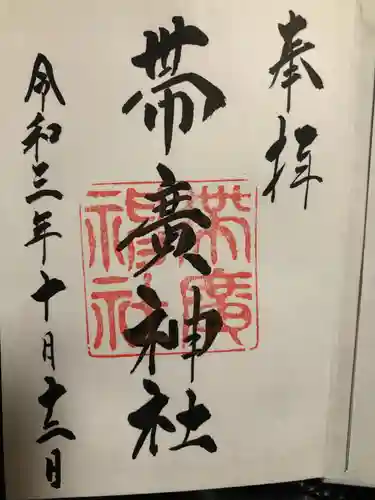 奉拝
帯廣神社
帯廣神社
令和三年十月十二日